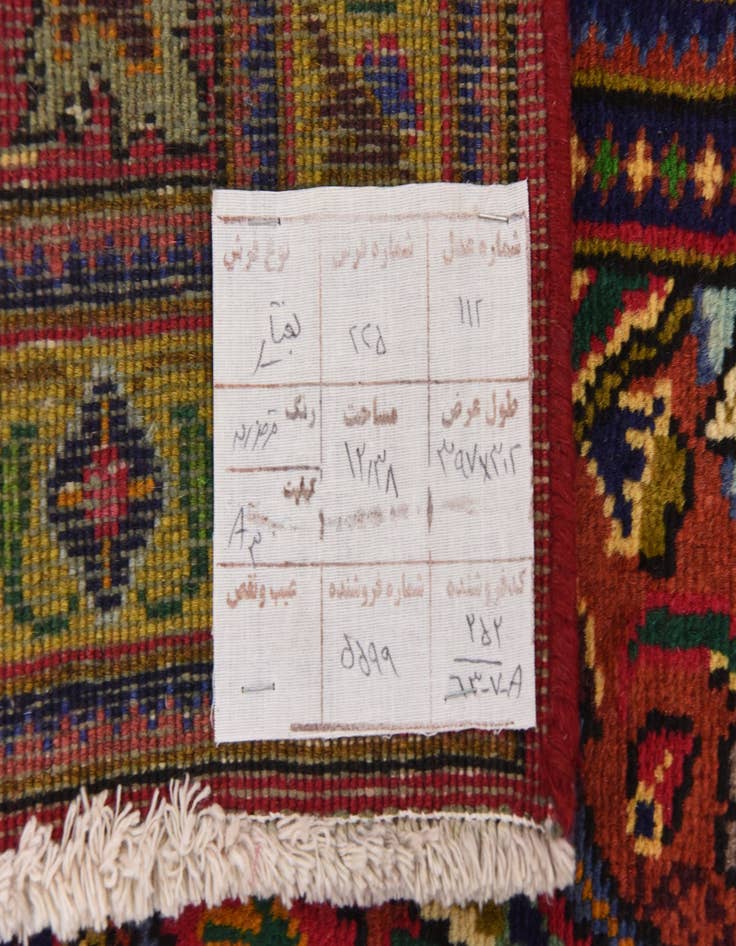 شماره عدل شماره فرش نوع فرش
۱۱۲ ۲۲۵
طول عرض مساحت رنگ
۳۹۷x۳۰۲ ۱۲/۳۸ قرمز
کیفیت
A
۳
کد فروشنده شماره فروشنده عیب و نقص
۲۵۲ ۵۵۹۹
۶۳-۷-A